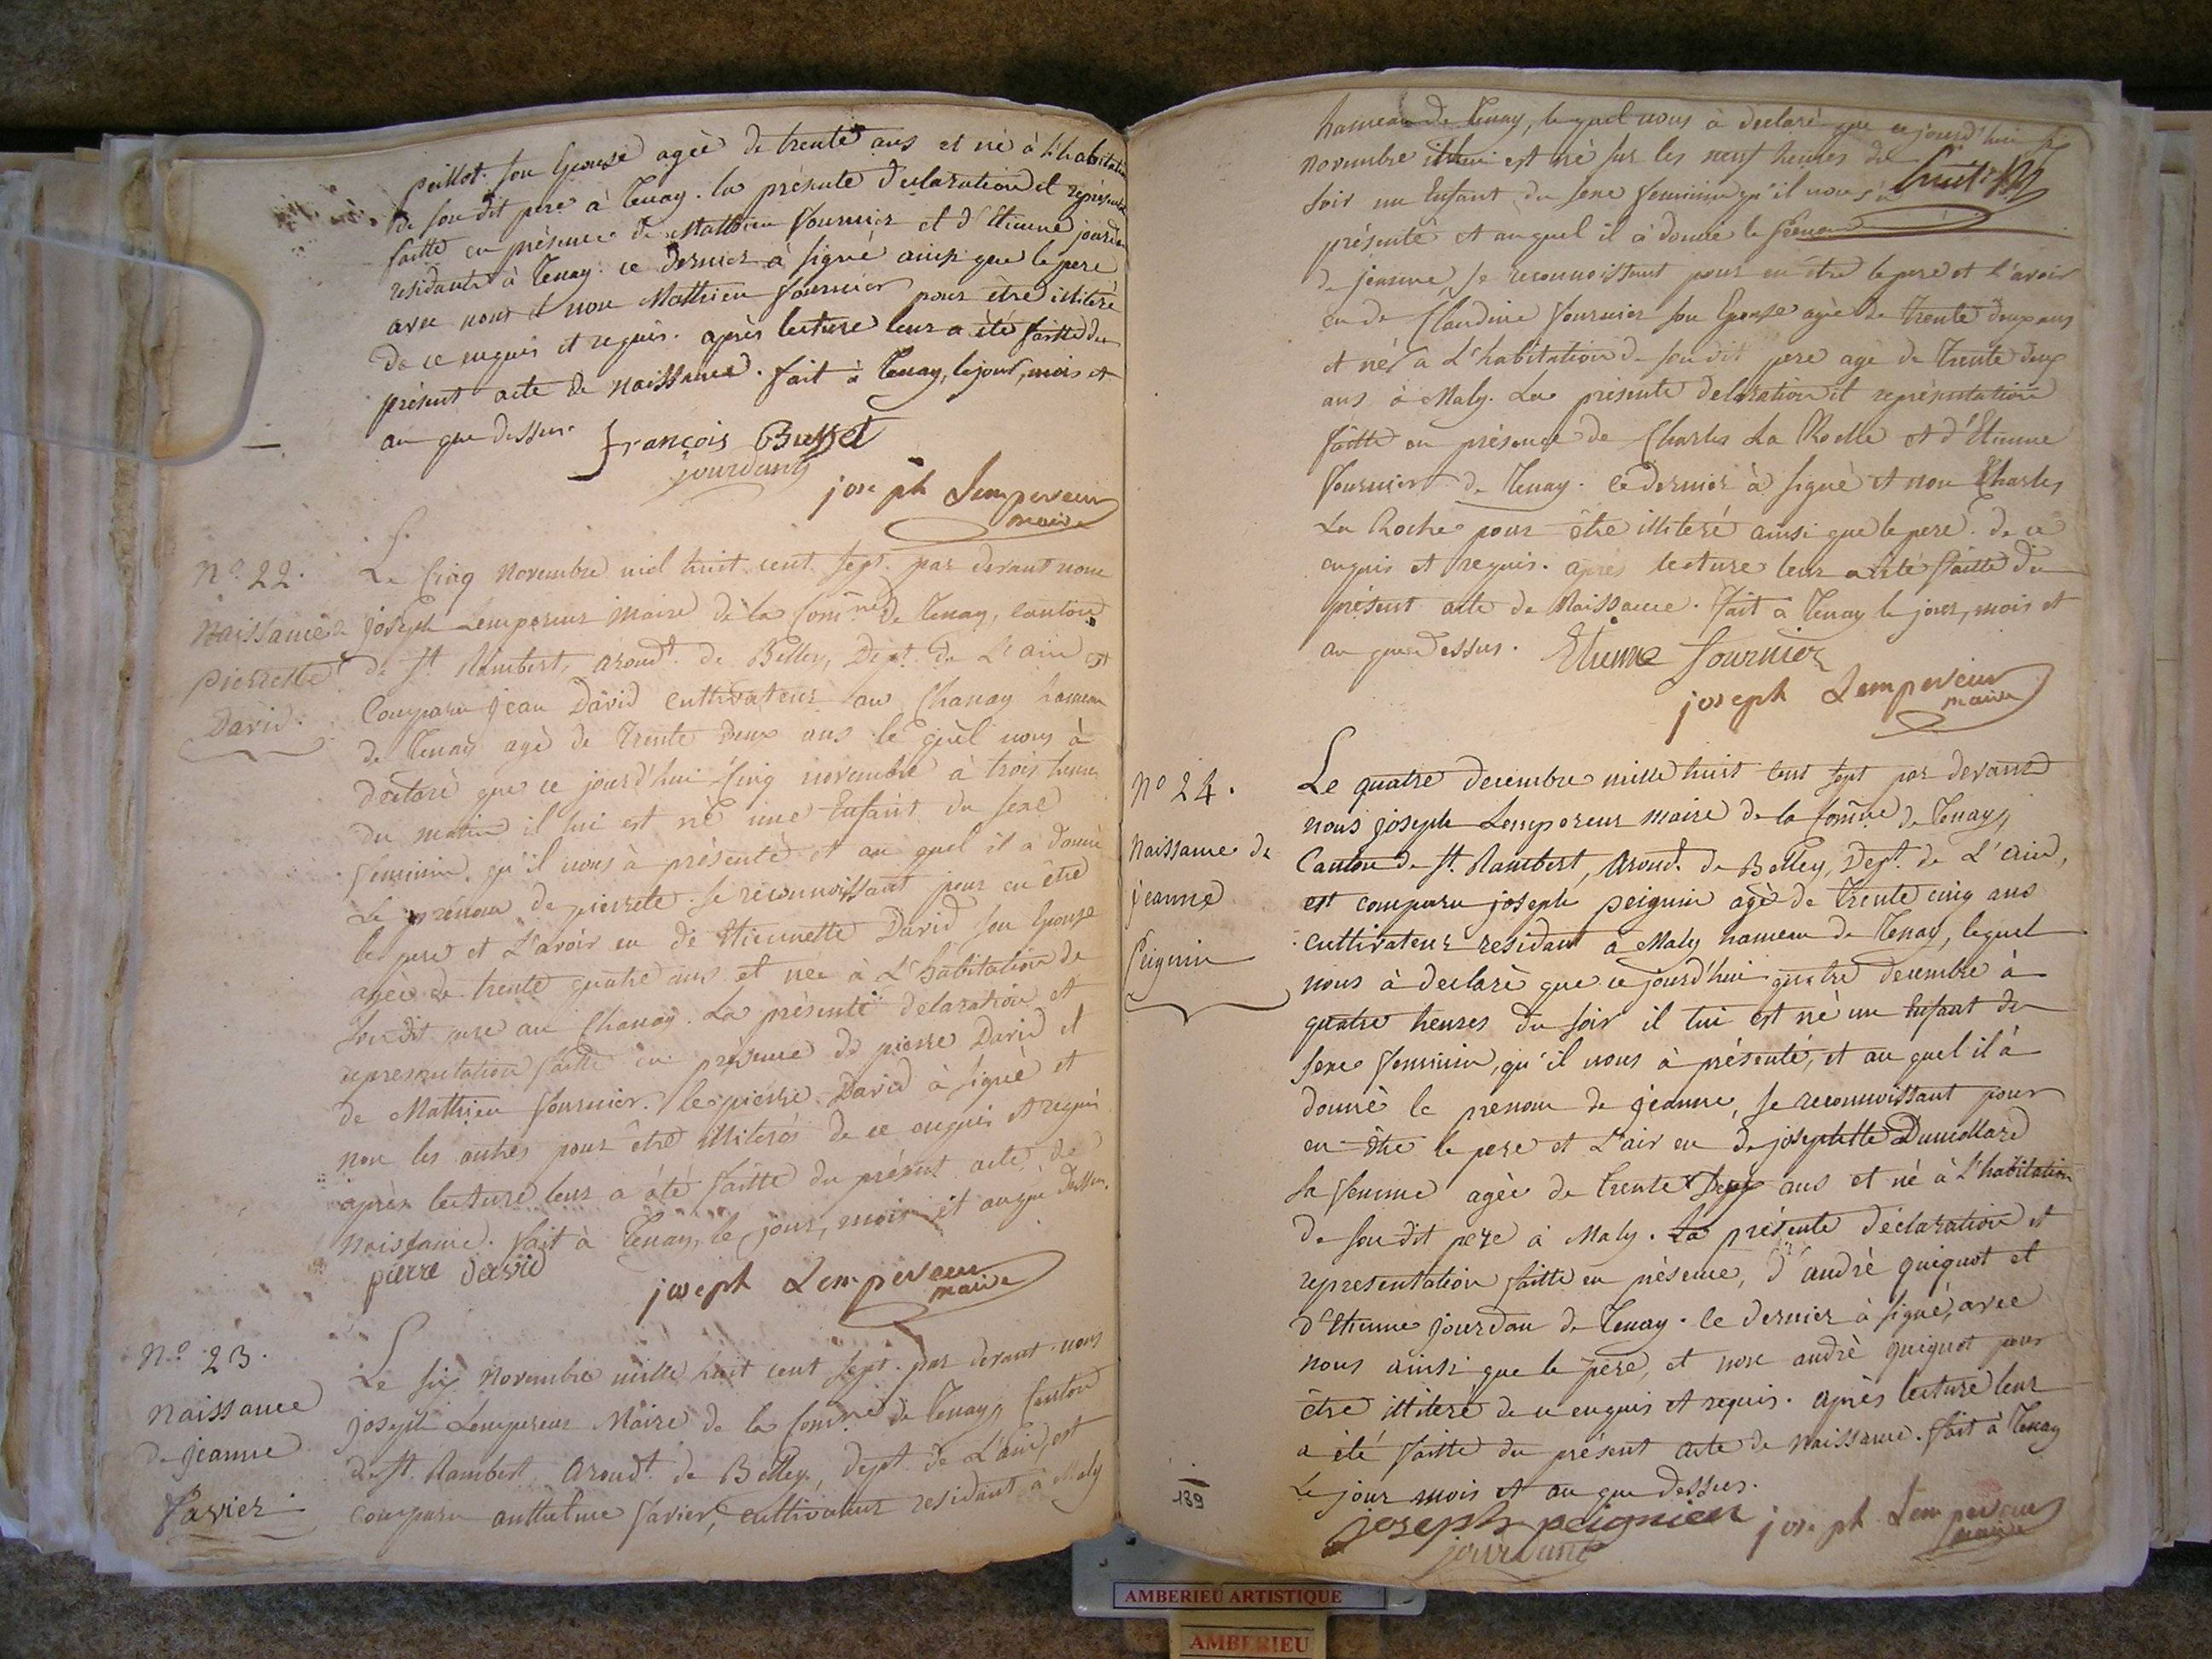 peillot son Epouse agèe de trente ans et né à L'habitation
de son dit pere à Tenay. la présente declaration et représent
faitte en présence de Mathieu fournier et d'Etienne jourdan
residants à Tenay. ce dernier à signé ainsi que le pere
avec nous et non Mathieu fournier pour être illiteré
de ce enquis et requis. après lecture leur a été faitte du
présent acte de naissance. fait à Tenay, le jour, mois et
an que dessus.
françois Buffet
jourdan
joseph Lempereur
maire
N.º 22.
Naissance de
pierrette
David.
Le Cinq Novembre mil huit cent sept. par devant nous
joseph Lempereur Maire de la Com.ne de Tenay, canton
de St. Rambert, Arond.t de Belley, Dept. de L'ain est
Comparu jean David cultivateur au Chanay hameau
de Tenay agè de Trente Deux ans le quel nous à
declaré que ce jourd'hui Cinq novembre à trois heures
du matin il lui est né une Enfant du sexe
feminin, qu'il nous à présenté et au quel il a donné
Le prénom de pierrete. se reconnoissant pour en être
le pere et L'avoir eu de Etiennette David son Epouse
agèe de trente quatre ans et née à L'habitation de
son dit pere au Chanay. La présente declaration et
representation faitte en présence de pierre David et
de Mathieu fournier. le pierre David à signé et
non les autres pour être illiterés de ce enquis et requis
après lecture leur a été faitte du présent acte de
Naissance. fait à Tenay, le jour, mois et an que dessus.
pierre david
joseph Lempereur
maire
N.º 23.
Naissance
de jeanne
favier
Le six Novembre mille huit cent sept. par devant nous
joseph Lempereur Maire de la Com.ne de Tenay, Canton
de St. Rambert, Arond.t de Belley, Dept. de L'ain, est
comparu favier, cultivateur residant à Maly
hameau de Tenay, le quel nous à declaré que ce jourd'hui six
novembre il lui est né sur les neuf heures du
soir un Enfant du sexe feminin qu'il nous à
présenté et auquel il à donné le prenom
de jeanne, se reconnoissant pour en être le pere et l'avoir
eu de Claudine fournier son Epouse agèe de trente deux ans
et née à L'habitation de son dit pere agé de trente deux
ans à Maly. La présente delaration et représentation
faitte en présence de Charles La Roche et d'Etienne
fournier de Tenay. ce dernier à signé et non Charles
La Roche pour être illiteré ainsi que le pere. de ce
enquis et requis. après lecture leur a été faitte du
présent acte de Naissance. fait à Tenay le jour, mois et
an que dessus.
Etienne fournier
joseph Lempereur
maire
Nº 24.
Naissance de
jeanne
Peignin
Le quatre decembre mille huit cent sept par devant
nous joseph Lempereur maire de la Com.ne de Tenay,
Canton de St. Rambert, Arond.t de Belley, Dept. de L'ain,
est comparu joseph peignin agè de trente cinq ans
cultivateur residant à Maly hameau de Tenay, lequel
nous à declaré que ce jourd'hui quatre decembre à
quatre heures du soir il lui est né un Enfant du
sexe feminin, qu'il nous à présenté, et au quel il à
donné le prenom de jeanne, se reconnoissant pour
en être le pere et L'air eu de josephtte Dumollard
sa femme agèe de trente Deux ans et né à L'habitation
de son dit pere à Maly. La présente déclaration et
representation faitte en présence, d'andré quignot et
d'Etienne jourdan de Tenay. le dernier à signé, avec
nous ainsi que le pere, et non andrè quignot pour
être illiteré de ce enquis et requis. après lecture leur
a été faitte du présent acte de Naissance. fait à Tenay
Le jour mois et an que dessus.
joseph peignien
joseph Lempereur
maire
jourdan
139
AMBERIEU ARTISTIQUE
AMBERIEU